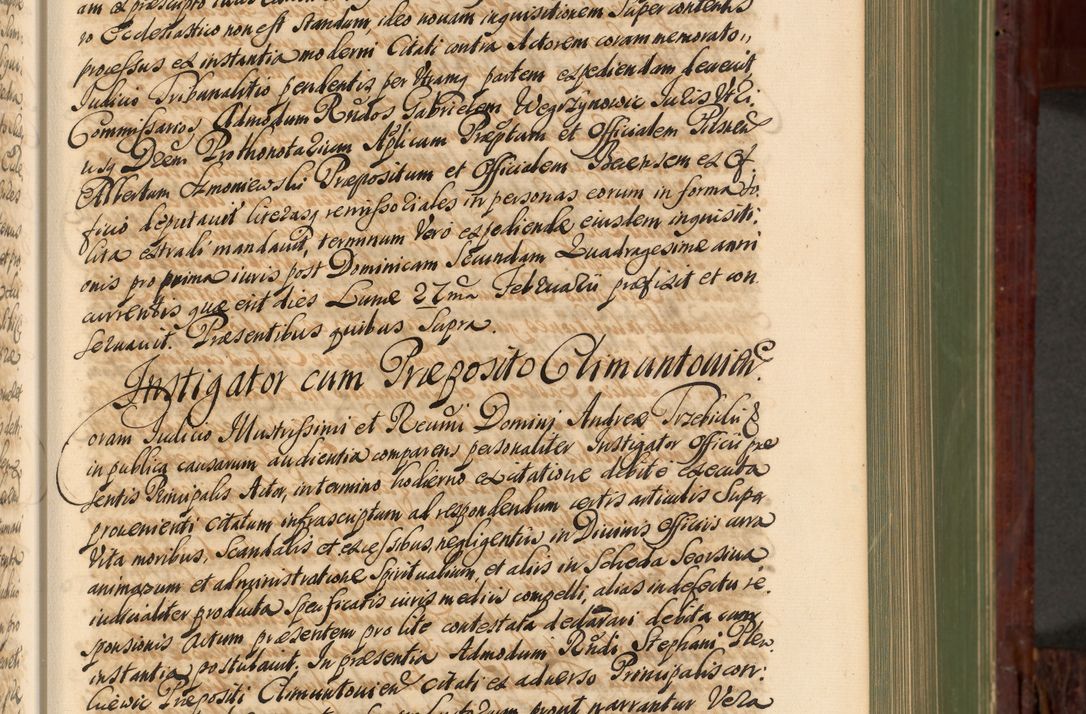 ro Ecclesiastico non est standum, ideo novam inquisitionem super contentis
processus ex instantia moderni Citati contra Actorem coram memorato,,
Judicio Tribunalitio pendentis per utramq partem expediendam devenit
Commissarios, Admodum Rndos Gabrielem Węgrzynowic Juris Utri,
usq Decem Prothonotarium Aplicum Præptam et Officialem Pilsen
Albertum Szmoniewski Præpositum et Officialem Becensem ex of
ficio deputavit literasq remissoriales in personas eorum in forma so
lita extradi mandavit, terminum vero expediendæ eiusdem inquisiti:
onis pro prima iuris post Dominicam Secundam Quadragesimæ anni
currentis quæ erit dies Lunæ 27ma Februarii præfixit et con
servavit. Præsentibus quibus Supra.
Instigator cum Præposito Climuntovien
Coram Judicio Illustrissimi et Reumi Domini Andreæ Trzebicki &
in publica causarum audientia comparens personaliter Instigator Officii præ
sentis Principalis Actor, in termino hodierno ex citatione debite executa
provenienti citatum infrascriptum ad respondendum certis articulis Supra
vita moribus, Scandalis et excessibus, negligentiis in Divinis officiis cura
animarum et administratione Spiritualium, et aliis in Scheda Seorsiva
iudicialiter producta Specificatis iuris mediis compelli, alias in defectu re
sponsionis Actum præsentem pro lite contestata declarari debita cum
instantia, postulavit. In præsentia Admodum Rndi Stephani Plew
ciewic Præpositi Climuntovien Citati ex adverso Principalis con:
prout narrantur Vera